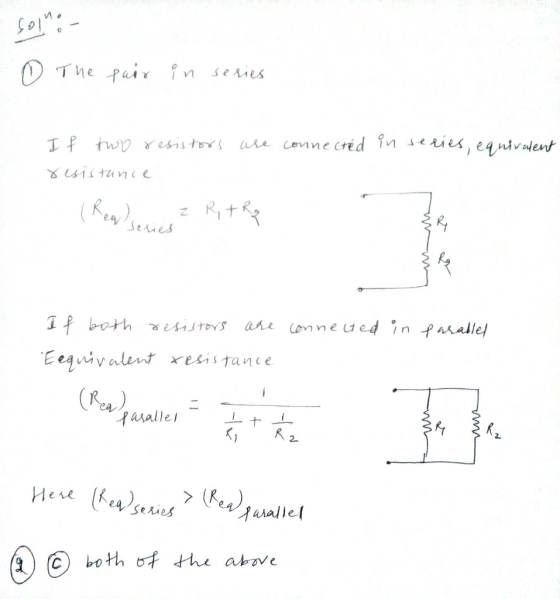 Solⁿ:-
① The pair in series
If two resistors are connected in series, equivalent
resistance
(Req)series = R1 + R2
R1
R2
If both resistors are connected in parallel
Eequivalent resistance
(Req)parallel = 1 / (1/R1 + 1/R2)
R1 R2
Here (Req)series > (Req)parallel
② Ⓒ both of the above